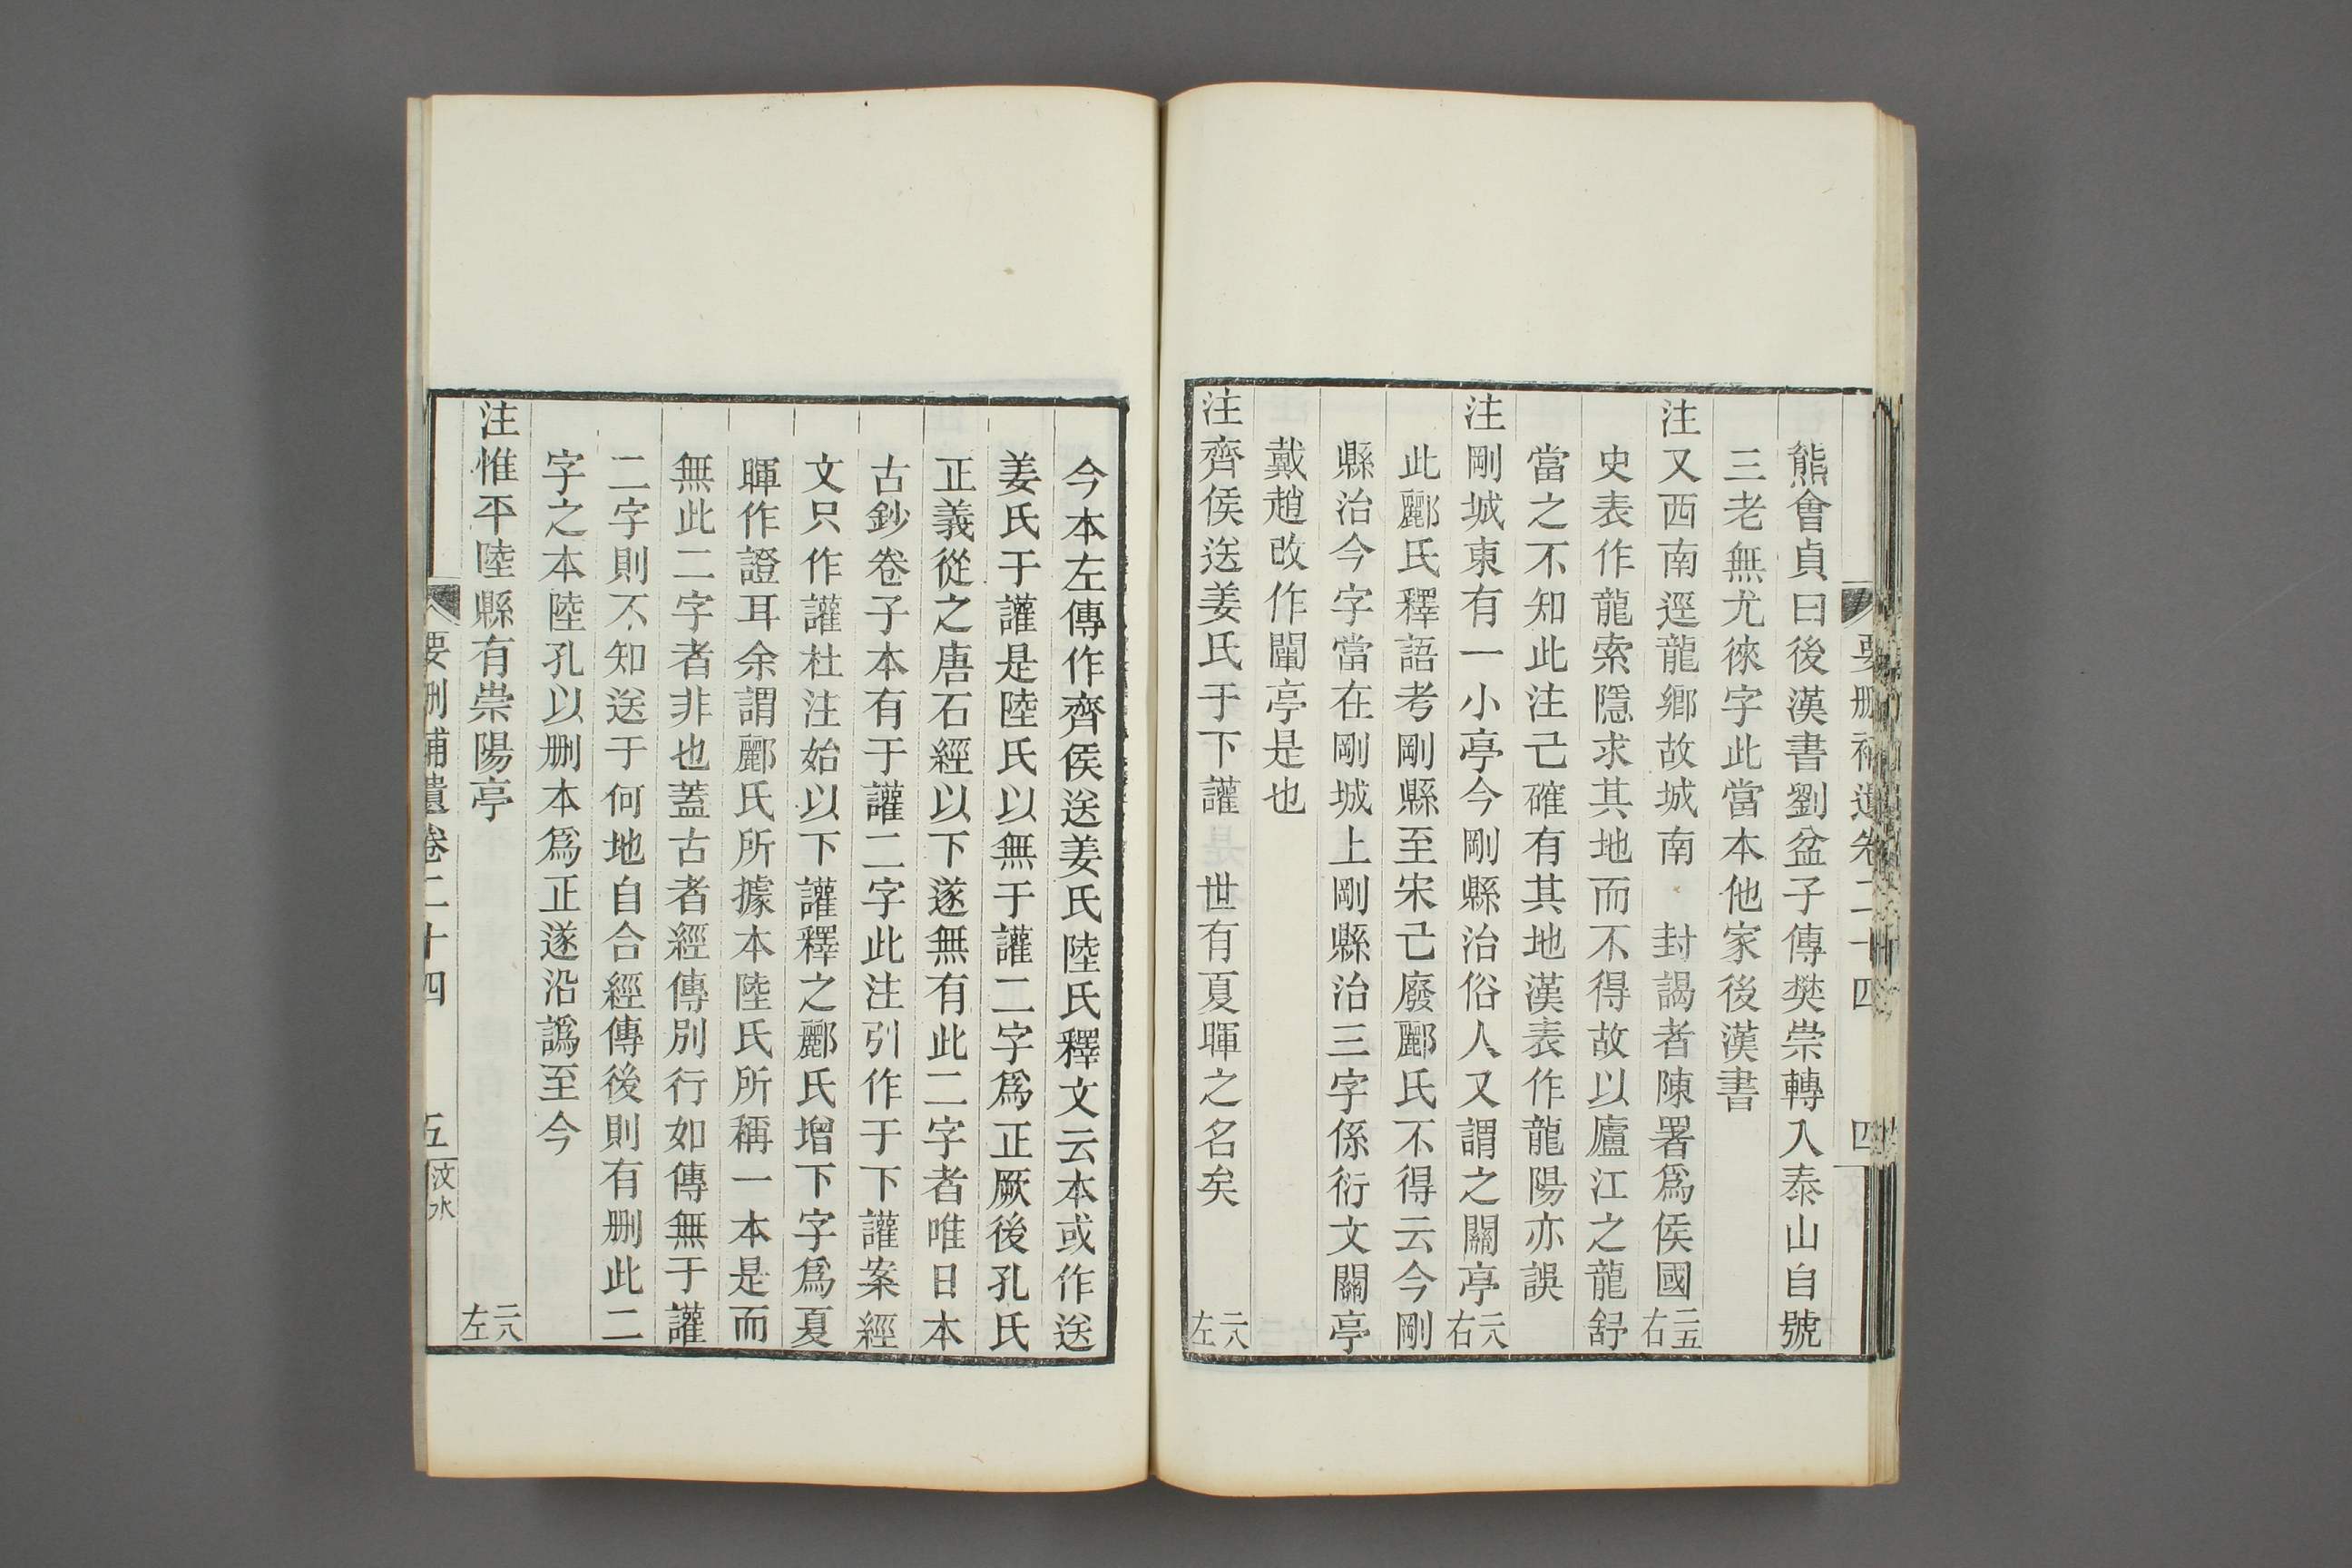 要刪補遺卷二十四 四
熊會貞曰後漢書劉盆子傳樊崇轉入泰山自號
三老無尤徠字此當本他家後漢書
注又西南逕龍鄉故城南 封謁者陳署爲侯國 二五右
史表作龍索隱求其地而不得故以廬江之龍舒
當之不知此注己確有其地漢表作龍陽亦誤
注剛城東有一小亭今剛縣治俗人又謂之闞亭 二八右
此酈氏釋語考剛縣至宋己廢酈氏不得云今剛
縣治今字當在剛城上剛縣治三字係衍文闞亭
戴趙改作闡亭是也
注齊侯送姜氏于下讙 世有夏暉之名矣 二八左
今本左傳作齊侯送姜氏陸氏釋文云本或作送
姜氏于讙是陸氏以無于讙二字爲正厥後孔氏
正義從之唐石經以下遂無有此二字者唯日本
古鈔卷子本有于讙二字此注引作于下讙案經
文只作讙杜注始以下讙釋之酈氏增下字爲夏
暉作證耳余謂酈氏所據本陸氏所稱一本是而
無此二字者非也蓋古者經傳別行如傳無于讙
二字則不知送于何地自合經傳後則有刪此二
字之本陸孔以刪本爲正遂沿譌至今
注惟平陸縣有崇陽亭 二八左
要刪補遺卷二十四 五 汶水